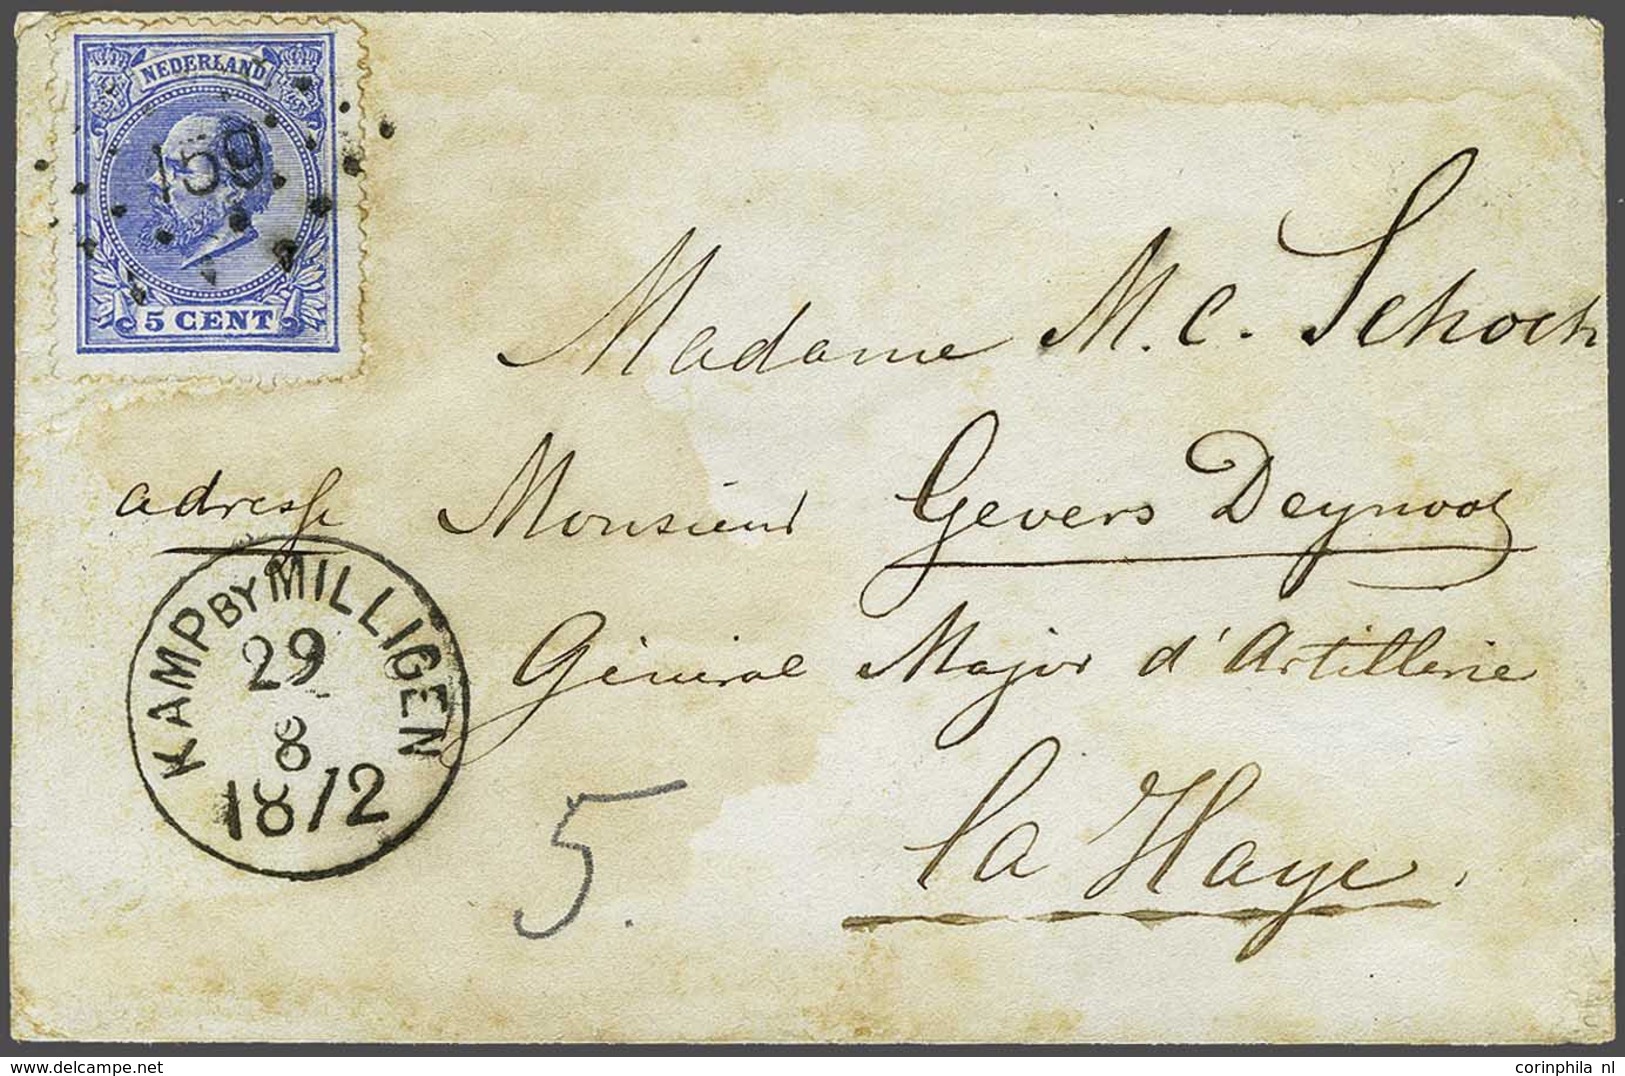 NEDERLAND
159
5 CENT
Madame M. C. Schoch
adresse Monsieur Gevers Deynoot
Général Major d'Artillerie
la Haye.
KAMP BY MILLIGEN
29
8
1872
5.
delcampe.net
corinphila nl